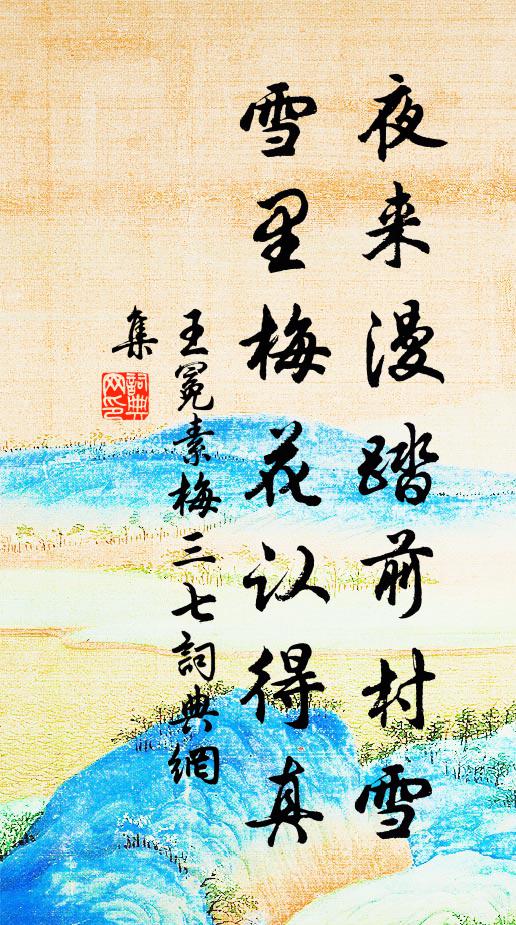 夜来漫踏前村雪
雪里梅花认得真
王冕素梅三七詞典網
集
詞典
网印